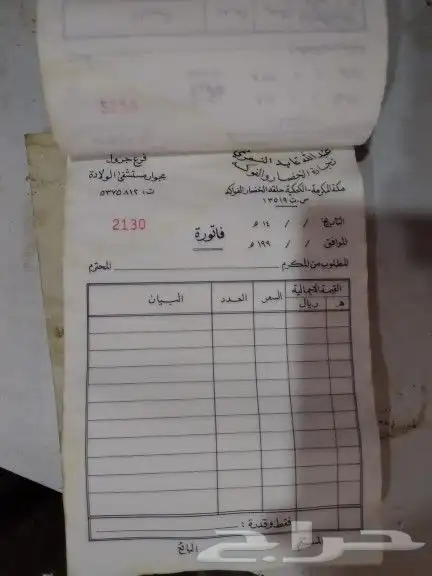 عبد الله عايد
تجارة الخضار والفواكه
مكة المكرمة - الكعكية حلقة الخضار والفواكه
س.ت ١٣٥١٩
فرع جرول
بجوار مستشفى الولادة
ت: ٥٣٧٥٨١٢
التاريخ / / ١٤ هـ
الموافق / / ١٩٩ م
فاتورة
2130
المطلوب من المكرم المحترم
القيمة الاجمالية السعر العدد البيان
هـ ريال
فقط وقدره :
المستلم البائع
حراج